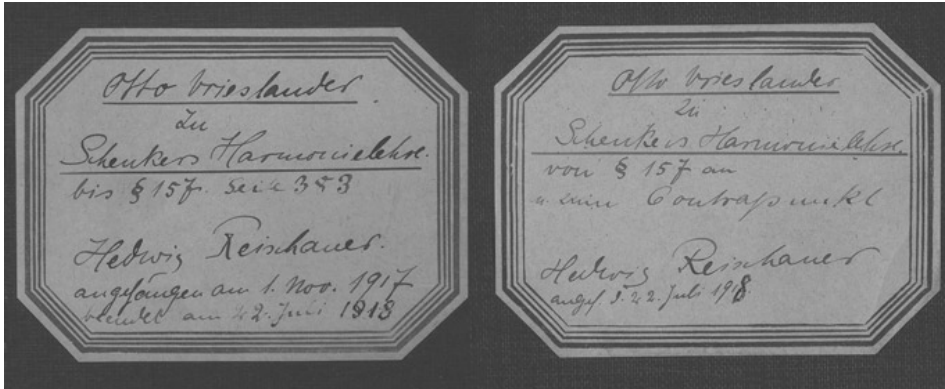 Otto Vrieslander
Zu
Schenkers Harmonielehre.
bis § 157. Seite 353
Hedwig Reischauer.
angefangen am 1. Nov. 1917
beendet am 22. Juli 1918
Otto Vrieslander
Zu
Schenkers Harmonielehre.
von § 157 an
u. zum Contrapunkt
Hedwig Reischauer
angef. d. 22. Juli 1918.